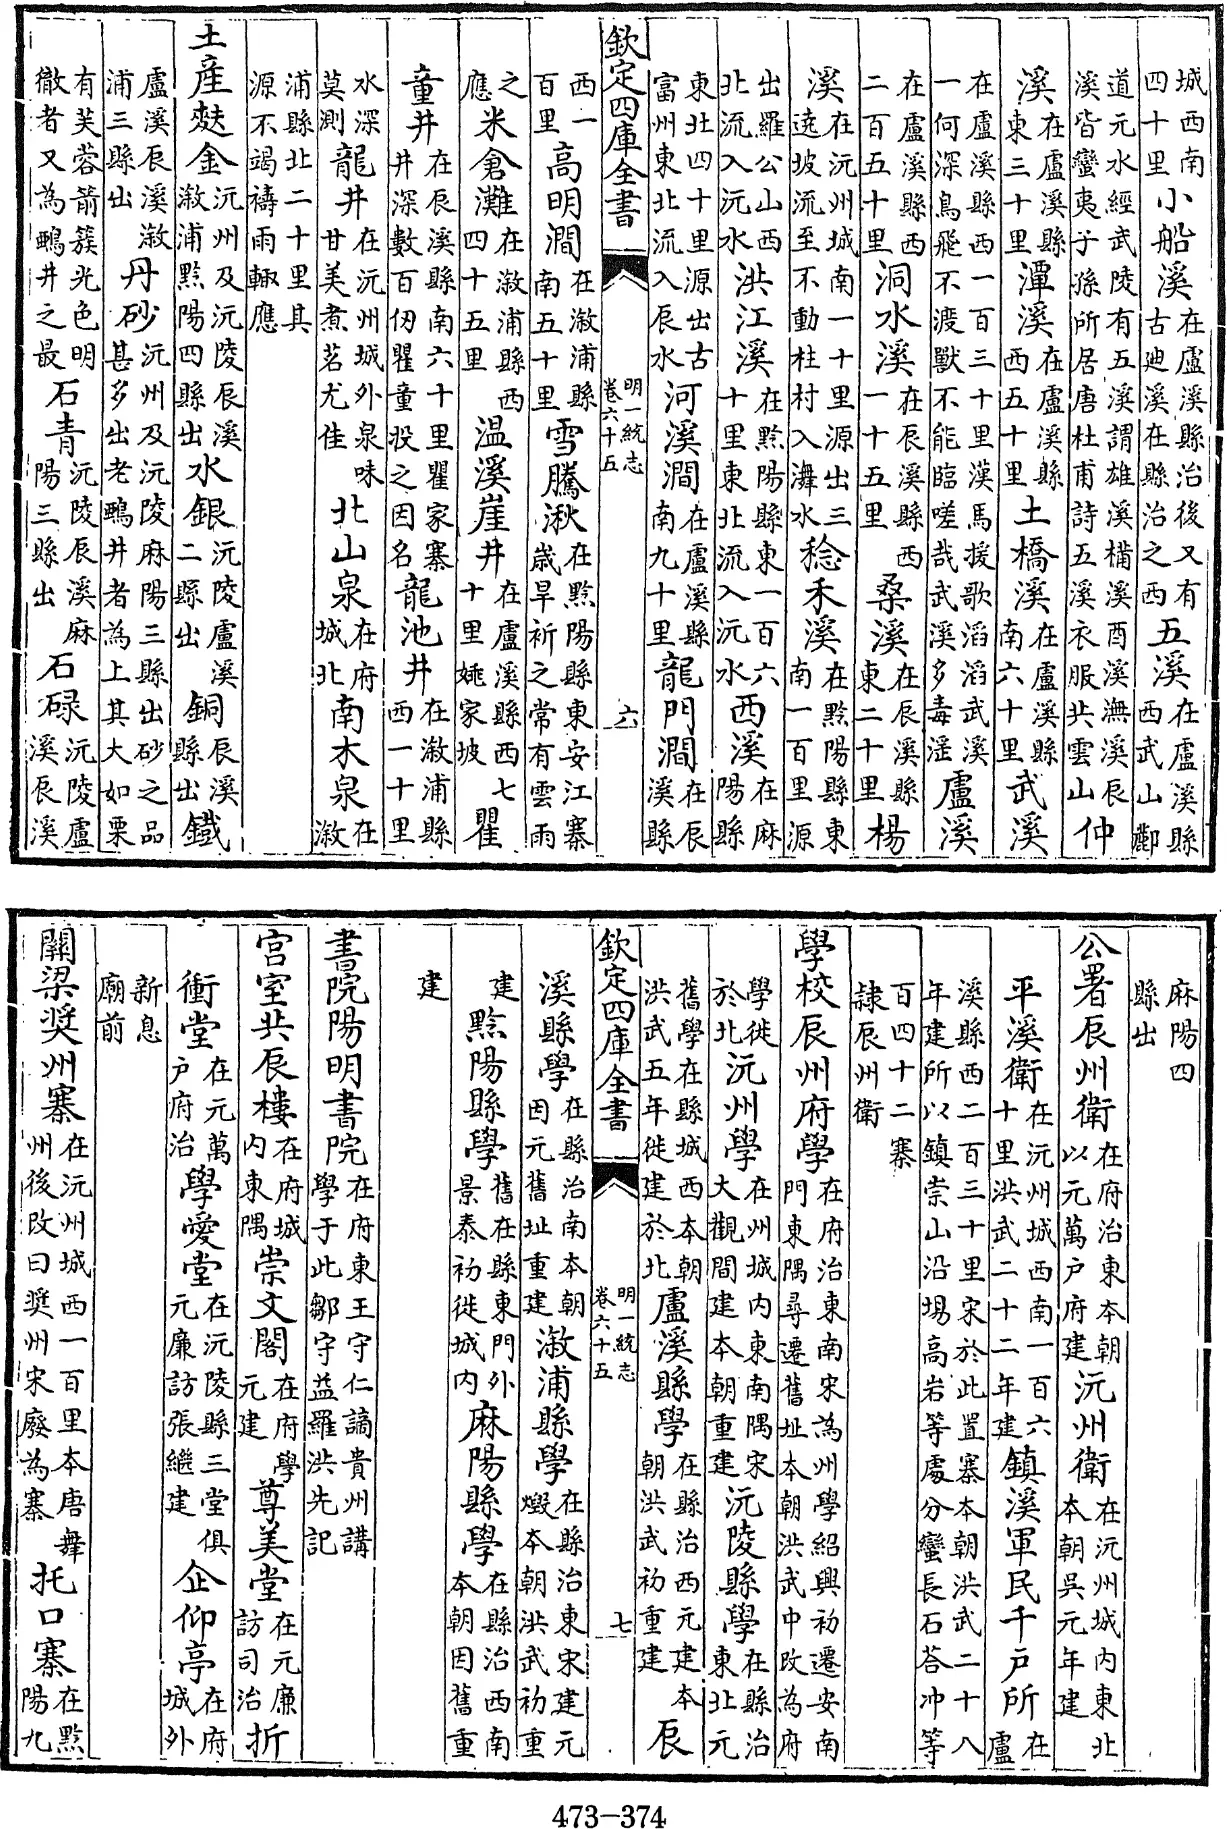 城西南四十里小船溪在盧溪縣治後又有古廸溪在縣治之西五溪在盧溪縣西武山酈
道元水經武陵有五溪謂雄溪樠溪酉溪潕溪辰溪皆蠻夷子孫所居唐杜甫詩五溪衣服共雲山仲
溪在盧溪縣東三十里潭溪在盧溪縣西五十里土橋溪在盧溪縣南六十里武溪
在盧溪縣西一百三十里漢馬援歌滔滔武溪一何深鳥飛不渡獸不能臨嗟哉武溪多毒淫盧溪
在盧溪縣西二百五十里洞水溪在辰溪縣西一十五里桑溪在辰溪縣東二十里楊
溪在沅州城南一十里源出三遶坡流至不動柱村入潕水稔禾溪在黔陽縣東南一百里源
出羅公山西北流入沅水洪江溪在黔陽縣東一百六十里東北流入沅水西溪在麻陽縣
東北四十里源出古富州東北流入辰水河溪澗在盧溪縣南九十里龍門澗在辰溪縣
欽定四庫全書 明一統志卷六十五 六
西一百里高明澗在漵浦縣南五十里雪騰湫在黔陽縣東安江寨歲旱祈之常有雲雨
之應米倉灘在漵浦縣西四十五里温溪崖井在盧溪縣西七十里姚家坡瞿
童井在辰溪縣南六十里瞿家寨井深數百仞瞿童投之因名龍池井在漵浦縣西一十里
水深莫測龍井在沅州城外泉味甘美煮茗尤佳北山泉在府城北南木泉在漵
浦縣北二十里其源不竭禱雨輙應
土産麩金沅州及沅陵辰溪漵浦黔陽四縣出水銀沅陵盧溪二縣出銅辰溪縣出鐵
盧溪辰溪漵浦三縣出丹砂沅州及沅陵麻陽三縣出砂之品甚多出老鵶井者為上其大如栗
有芙蓉箭簇光色明徹者又為鵶井之最石青沅陵辰溪麻陽三縣出石碌沅陵盧溪辰溪
麻陽四縣出
公署辰州衛在府治東本朝以元萬户府建沅州衛在沅州城内東北本朝吳元年建
平溪衛在沅州城西南一百六十里洪武二十二年建鎮溪軍民千户所在盧
溪縣西二百三十里宋於此置寨本朝洪武二十八年建所以鎮崇山沿場高岩等處分蠻長石荅冲等
百四十二寨隸辰州衛
學校辰州府學在府治東南宋為州學紹興初遷安南門東隅尋遷舊址本朝洪武中改為府
學徙於北沅州學在州城内東南隅宋大觀間建本朝重建沅陵縣學在縣治東北元
舊學在縣城西本朝洪武五年徙建於北盧溪縣學在縣治西元建本朝洪武初重建辰
欽定四庫全書 明一統志卷六十五 七
溪縣學在縣治南本朝因元舊址重建漵浦縣學在縣治東宋建元燬本朝洪武初重
建黔陽縣學舊在縣東門外景泰初徙城内麻陽縣學在縣治西南本朝因舊重
建
書院陽明書院在府東王守仁謫貴州講學于此鄒守益羅洪先記
宫室共辰樓在府城内東隅崇文閣在府學元建尊美堂在元廉訪司治折
衝堂在元萬户府治學愛堂在沅陵縣三堂俱元廉訪張繼建企仰亭在府城外
新息廟前
關梁奬州寨在沅州城西一百里本唐舞州後改曰奬州宋廢為寨托口寨在黔陽九
473-374